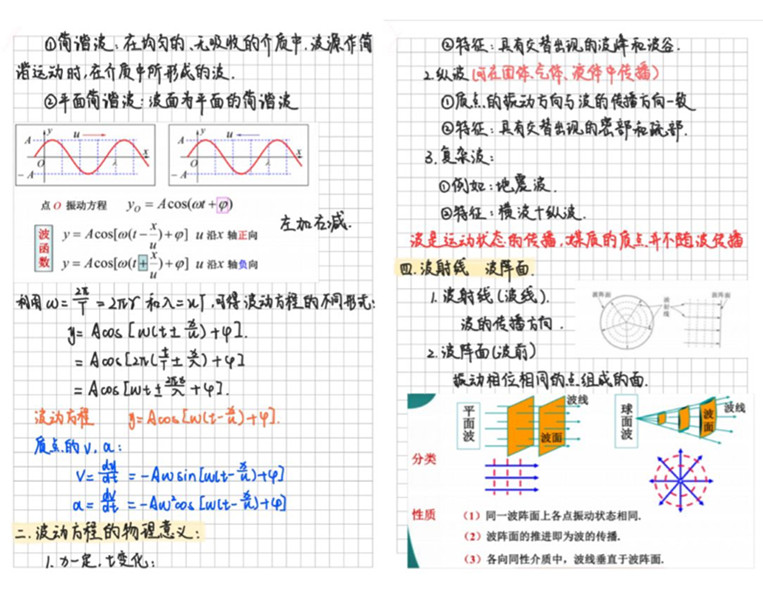 ①简谐波：在均匀的、无吸收的介质中，波源作简
谐运动时，在介质中所形成的波.
②平面简谐波：波面为平面的简谐波
y u y u
A A
O x O x
-A -A
点O 振动方程 y_O = A cos(ωt + φ)
左加右减.
波函数
y = A cos[ω(t - x/u) + φ] u 沿x 轴正向
y = A cos[ω(t + x/u) + φ] u 沿x 轴负向
利用 ω = 2π/T = 2πr 和 λ = uT，可得波动方程的不同形式：
y = Acos [w(t ± x/u) + φ].
= Acos [2π(t/T ± x/λ) + φ]
= Acos [wt ± 2πx/λ + φ].
波动方程 y = Acos [w(t - x/u) + φ].
质点的 v, a:
V = dy/dt = -Aw sin [w(t - x/u) + φ]
a = dv/dt = -Aw²cos [w(t - x/u) + φ]
二. 波动方程的物理意义：
1. x一定，t变化：
②特征：具有交替出现的波峰和波谷.
2.纵波（可在固体、气体、液体中传播）
①质点的振动方向与波的传播方向一致
②特征：具有交替出现的密部和疏部.
3.复杂波：
①例如：地震波.
②特征：横波+纵波.
波是运动状态的传播，媒质的质点并不随波传播
四.波射线 波阵面.
1.波射线（波线）.
波的传播方向.
波阵面 波射线 波阵面
2.波阵面（波前）
振动相位相同的点组成的面.
平面波 波线 波面
球面波 波线 波面
分类
性质 （1）同一波阵面上各点振动状态相同.
（2）波阵面的推进即为波的传播.
（3）各向同性介质中，波线垂直于波阵面.